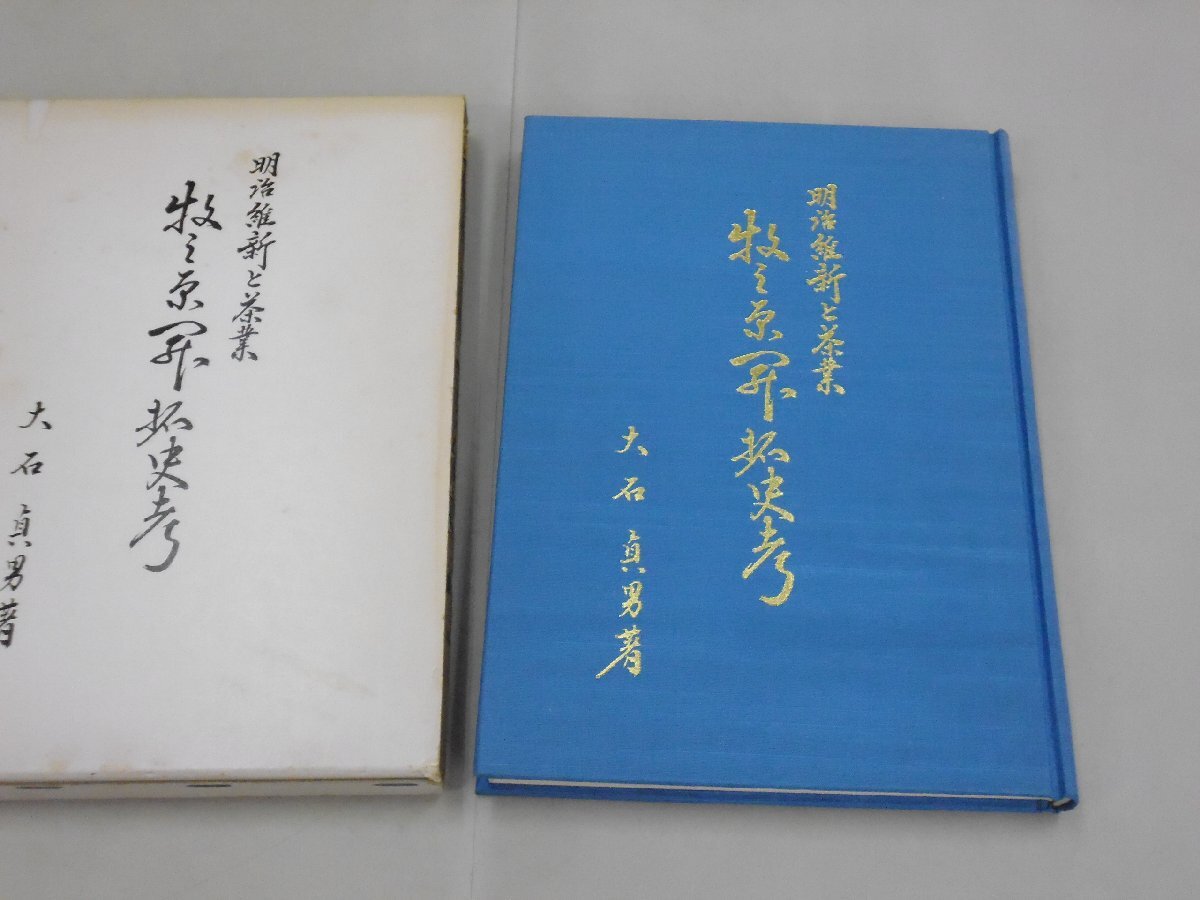 明治維新と茶業
牧之原開拓史考
大石貞男著
明治維新と茶業
牧之原開拓史考
大石貞男著